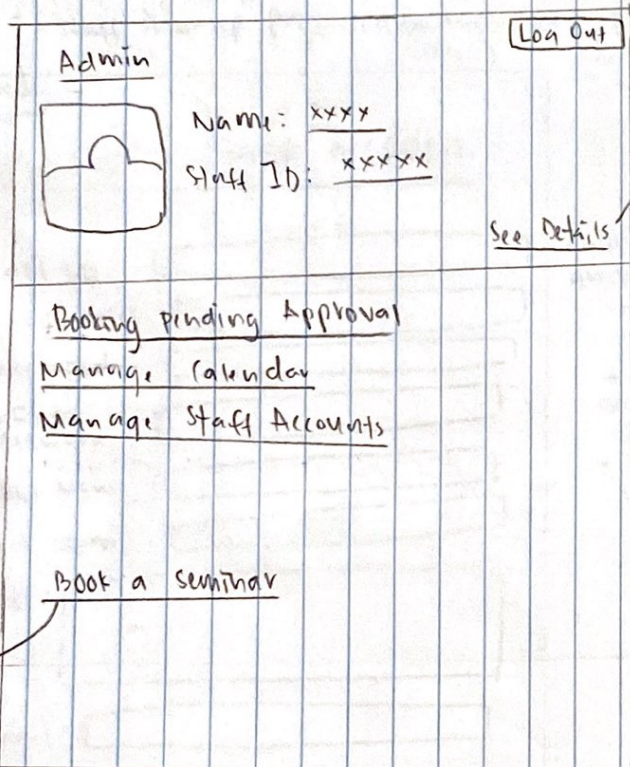 Log Out
Admin
Name: xxxx
Staff ID: xxxxx
See Details
Booking pending Approval
Manage Calendar
Manage Staff Accounts
Book a seminar